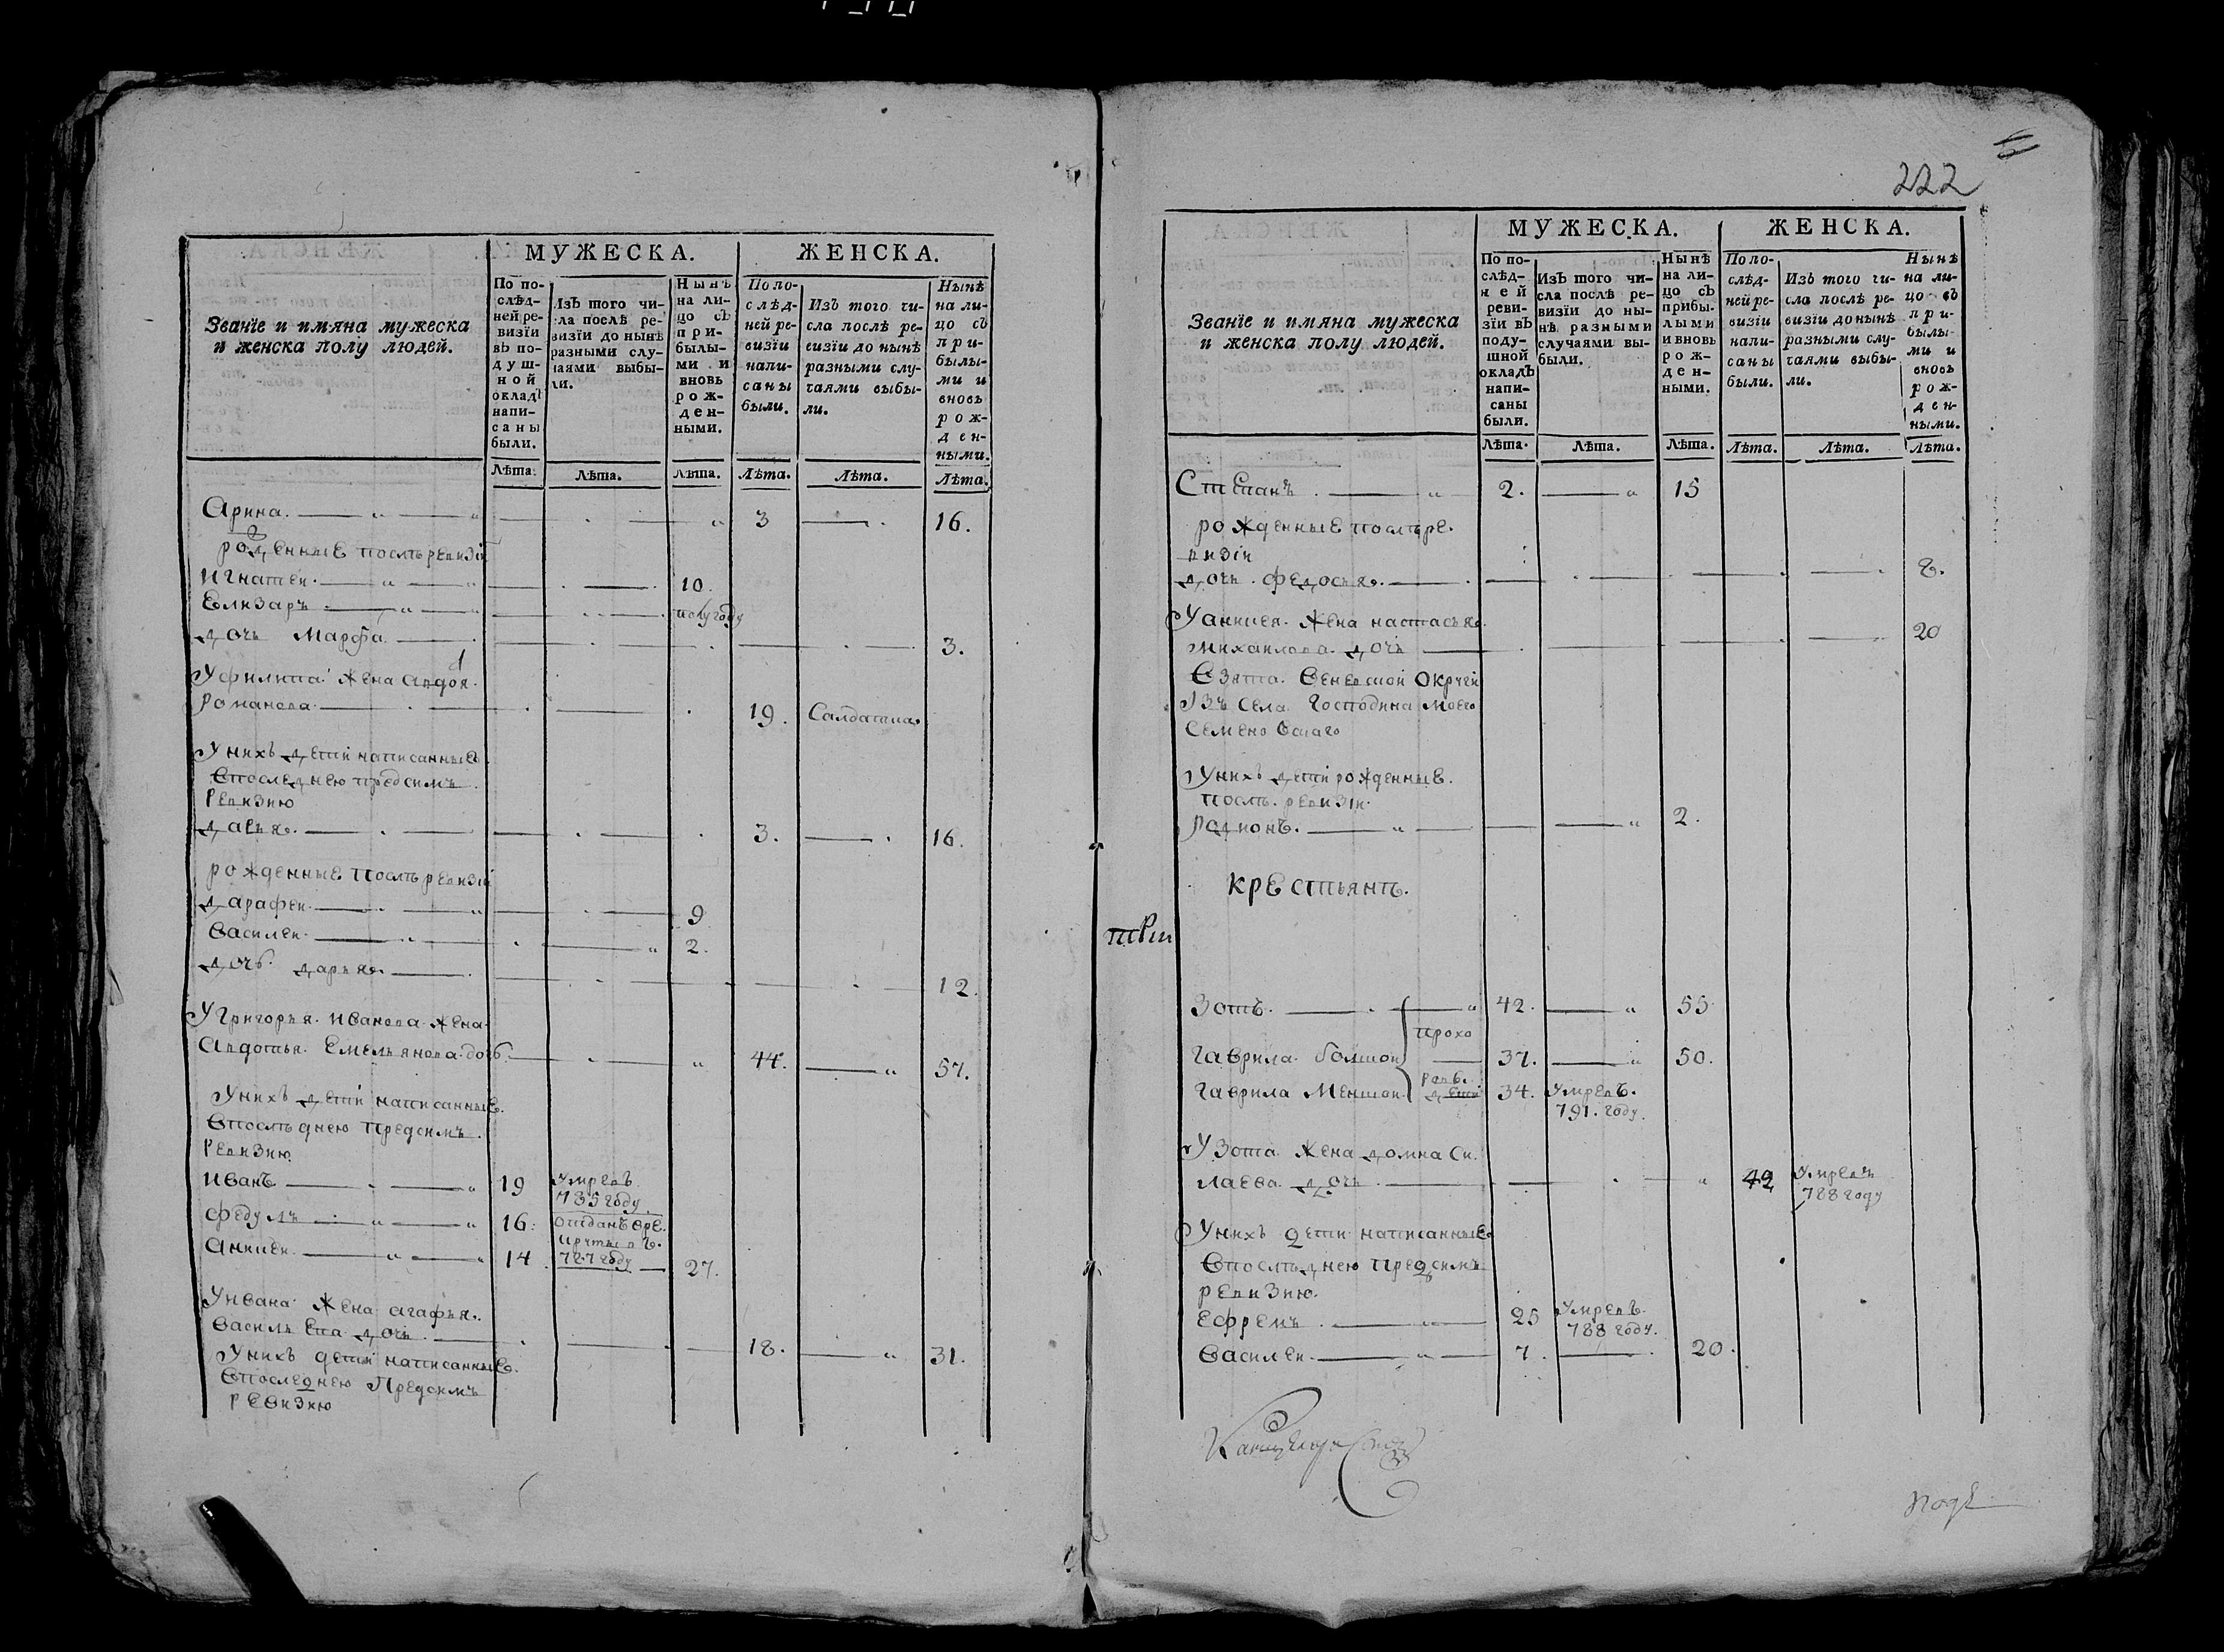 МУЖЕСКА. ЖЕНСКА.
Званїе и имяна мужеска
и женска полу людей.
По по-
слѣд-
ней ре-
визїи
въ по-
душ-
ной
окладъ
напи-
саны
были.
Изъ того чи-
сла послѣ ре-
визїи до нынѣ
разными слу-
чаями выбы-
ли.
Нынѣ
на ли-
цо съ
при-
былы-
ми и
вновь
рож-
ден-
ными.
По по-
слѣд-
ней ре-
визїи
напи-
саны
были.
Изъ того чи-
сла послѣ ре-
визїи до нынѣ
разными слу-
чаями выбы-
ли.
Нынѣ
на ли-
цо съ
при-
былы-
ми и
вновь
рож-
ден-
ными.
Лѣта. Лѣта. Лѣта. Лѣта. Лѣта. Лѣта.
Арина. 3 16.
рожденные послѣ ревизіи
Игнатеи. 10.
Елизаръ полугоду
дочь Марфа. 3.
У филипа жена авдоя.
Романова 19. Салдатила
У нихъ дети написанные
впоследнею предсимъ
ревизию
дарья. 3. 16.
рожденные послѣ ревизіи
дарафеи. 9
Василеи. 2.
дочь дарья. 12.
У Григорья Иванова жена
Авдотья Емельянова дочь. 44. 57.
У нихъ дети написанные
впослѣднею предсимъ
ревизию
Иванъ 19 Умревъ
785 году
федулъ 16. отданъ вре-
круты въ
787 году
Аникеи. 14. 27.
У Ивана жена агафья
Васильева дочь. 18. 31.
У нихъ дети написанные
впоследнею Предсимъ
ревизию
222
МУЖЕСКА. ЖЕНСКА.
Званїе и имяна мужеска
и женска полу людей.
По по-
слѣд-
ней
реви-
зїи въ
поду-
шной
окладъ
напи-
саны
были.
Изъ того чи-
сла послѣ ре-
визїи до ны-
нѣ разными
случаями вы-
были.
Нынѣ
на ли-
цо съ
прибы-
лыми
и вновь
рож-
ден-
ными.
По по-
слѣд-
ней ре-
визїи
напи-
саны
были.
Изъ того чи-
сла послѣ ре-
визїи до нынѣ
разными слу-
чаями выбы-
ли.
Нынѣ
на ли-
цо съ
при-
былы-
ми и
вновь
рож-
ден-
ными.
Лѣта. Лѣта. Лѣта. Лѣта. Лѣта. Лѣта.
Степанъ 2. 15
рожденные послѣ ре-
визіи
дочь федосья. 8.
У аникея жена настасья
михаилова дочь 20
Взята Веневской округи
Изъ села Господина моего
Семеновскаго
У нихъ дети рожденные
послѣ ревизіи
Родионъ. 2.
Крестьянъ.
Зотъ. 42. 55
прохо
Гаврила большои 37. 50.
ровь
Гаврила Меншои дети 34. Умревъ.
791. году.
У Зота жена домна Ни-
лаева дочь 42 Умревъ
788 году
У нихъ дети написанные
впослѣднею предсимъ
ревизию.
Ефремъ 25 Умревъ
788 году.
Василеи. 7. 20.